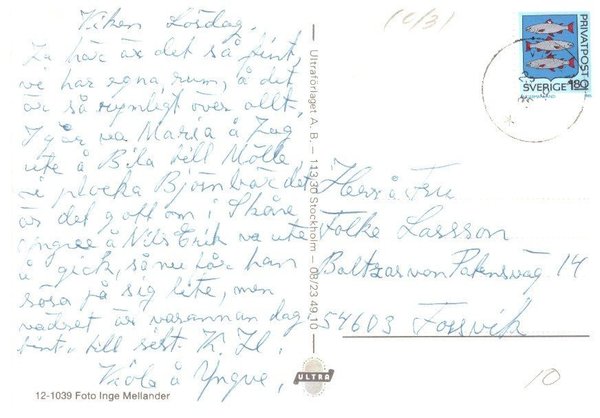 Viken Lördag.
Ja här är det så fint,
vi har egna rum, å det
är så rymligt över allt,
Igår va Maria å Jag
ute å Bila till Mölle,
vi plocka Björnbär det
är det gott om i Skåne
Ingree å Nils Erik va ute
å gick, så nu får han
sösa på sig lite, men
vädret är varannan dag
fint, till sist. K. H.
Viola å Yngve,
12-1039 Foto Inge Mellander
Ultraförlaget A.B. – 113 30 Stockholm – 08/23 49 10
ULTRA
PRIVATPOST
SVERIGE 180
Herr å Fru
Folke Larsson
Baltzar von Platensväg 14
54603 Forsvik
10